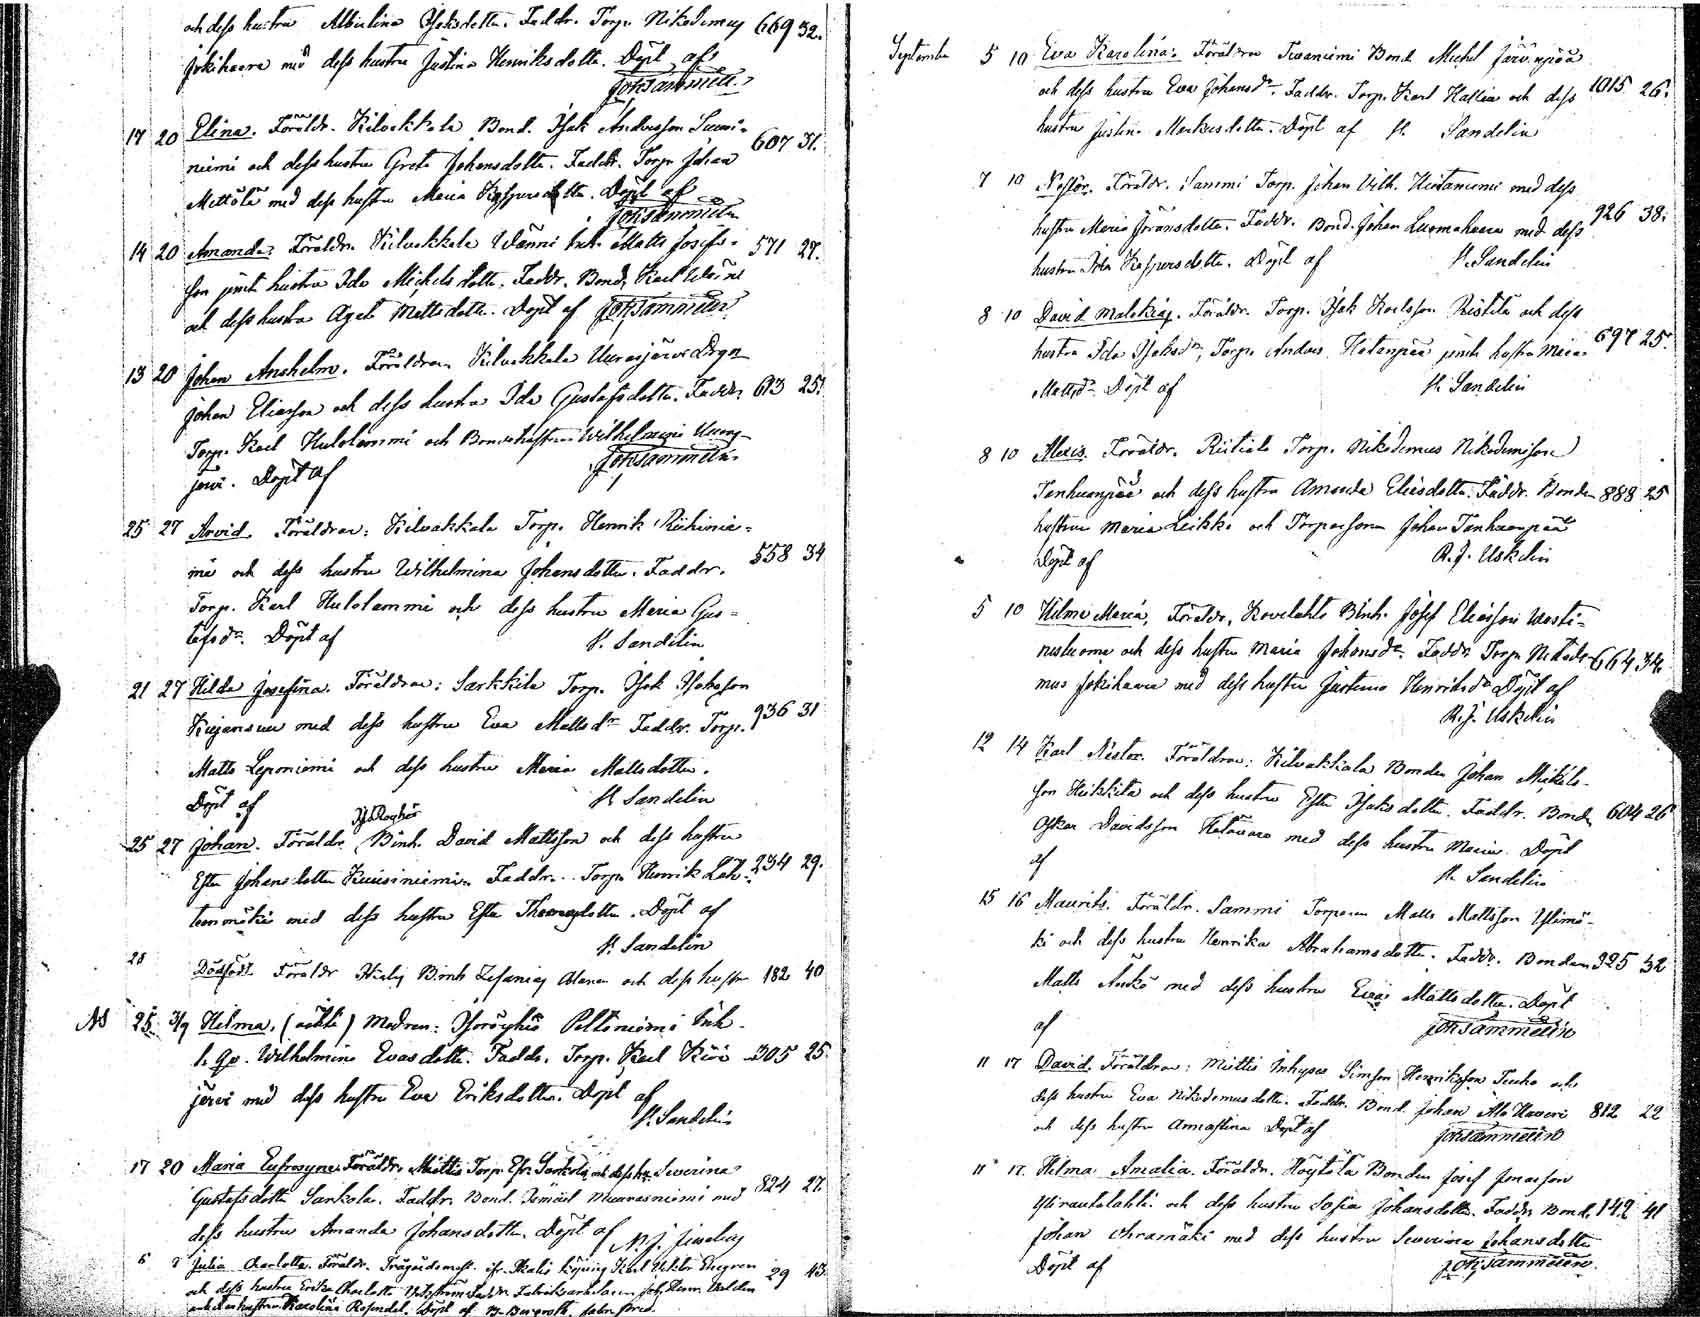 och dess hustru Albertina Isaksdotter. Faddr. Torp. Nikodemus 669 32.
Jokihaara med dess hustru Justina Henriksdotter. Döpt af
Joh Sammelin
17 20 Elina. Föräldr. Kilvakkala Bond. Isak Andersson Sumi-
niemi och dess hustru Greta Johansdotter. Faddr. Torp. Johan 607 31.
Mettölä med dess hustru Maria Kaspersdotter. Döpt af
Joh Sammelin
14 20 Amanda. Föräldr. Kilvakkala Wänni Inh. Matts Josefs- 571 27.
son jemte hustru Ida Michelsdotter. Faddr. Bond. Karl Wäini
och dess hustru Agata Mattsdotter. Döpt af Joh Sammelin
13 20 Johan Anshelm. Föräldrar Kilvakkala Uurasjärvi Drgn
Johan Eliasson och dess hustru Ida Gustafsdotter. Faddr. 613 25.
Torp. Karl Hulolammi och Bondehustrun Wilhelmina Uuras-
järvi. Döpt af Joh Sammelin
25 27 Arvid. Föräldrar: Kilvakkala Torp. Henrik Riihinie-
mi och dess hustru Wilhelmina Johansdotter. Faddr. 558 34
Torp. Karl Hulolammi och dess hustru Maria Gus-
tafsdr. Döpt af K. Sandelin
21 27 Hilda Josefina. Föräldrar: Sarkkila Torp. Isak Isaksson
Kujansuu med dess hustru Eva Mattsdr Faddr. Torp. 936 31
Matts Leponiemi och dess hustru Maria Mattsdotter.
Döpt af K. Sandelin
Is. Röyhiö
25 27 Johan. Föräldr. Binh. David Mattsson och dess hustru
Ester Johansdotter Kuusiniemi. Faddr. Torp. Henrik Leh- 234 29.
tenmäki med dess hustru Ester Thomasdotter. Döpt af
K. Sandelin
28 Dödfödt. Föräldr. Binh. Zefanias och dess hustru 182 40
NB 25 3/9 Helma. (oäkta) Modren: Isoröyhiö Peltoniemi Inh.
Wilhelmina Evasdotter. Faddr. Torp. Karl Kivi- 305 25.
järvi med dess hustru Eva Eriksdotter. Döpt af
K. Sandelin
17 20 Maria Eufrosyne. Föräldr. Miettis Torp. Efr. Sankola och dess hu. Severina
Gustafsdotter Sankola. Faddr. Bond. Ismael Muurasniemi med 824 27.
dess hustru Amanda Johansdotter. Döpt af N. J. Jvselius
6 Julia Charlotta. Föräldr. Trägårdsmäst. Karl Viktor Engren
och dess hustru Erika Charlotta Faddr. Fabriksarbetaren Joh. 29 43.
och hustrun Karolina Rosendal. Döpt af

September 5 10 Eva Karolina. Föräldrar Tevaniemi Bond. Michel Järvenpää
och dess hustru Eva Johansdr. Faddr. Torp. Karl Hallia och dess 1015 26.
hustru Justina Markusdotter. Döpt af K. Sandelin
7 10 Nestor. Föräldr. Sammi Torp. Johan Vilh. Hietaniemi med dess
hustru Maria Göransdotter. Faddr. Bond. Johan Luomahaara med dess 926 38.
hustru Ida Kaspersdotter. Döpt af K. Sandelin
8 10 David Malakias. Föräldr. Torp. Isak Karlsson Ristila och dess
hustru Ida Isaksdr, Torp. Anders Hetanpää jemte hustru Maria 697 25.
Mattsdr. Döpt af K. Sandelin
8 10 Alexis. Föräldr. Riitiala Torp. Nikodemus Nikodemisson
Tenhuanpää och dess hustru Amanda Eliasdotter. Faddr. Bonde- 888 25
hustrun Maria Leikko och Torparsonen Johan Tanhuanpää
Döpt af R. J. Uskelin
5 10 Hilma Maria. Föräldr. Kovelahti Binh. Josef Eliasson Westi-
nestuoma och dess hustru Maria Johansdr. Faddr. Torp. Nikode- 664 34.
mus Jokihaara med dess hustru Justina Henriksdr Döpt af
R. J. Uskelin
12 14 Karl Nestor. Föräldrar: Kilvakkala Bonden Johan Mickels-
son Heikkilä och dess hustru Ester Isaksdotter. Faddr. Bonden 604 26
Oskar Davidsson Hatavara med dess hustru Maria. Döpt
af K. Sandelin
15 16 Maurits. Föräldr. Sammi Torparen Matts Mattsson Ylimä-
ki och dess hustru Henrika Abrahamsdotter. Faddr. Bonden 325 32
Matts Ankö med dess hustru Eva Mattsdotter. Döpt
af Joh Sammelin
11 17 David. Föräldrar: Miettis Inhyses Simson Henriksson Tuuha och
dess hustru Eva Nikodemusdotter. Faddr. Bond. Johan Ala Haveri 812 22
och dess hustru Annastina Döpt af Joh Sammelin
11 17. Helma Amalia. Föräldr. Höytölä Bonden Josef Jonasson
Ylirautalahti och dess hustru Sofia Johansdotter. Faddr. Bond. 142 41
Johan Ohramäki med dess hustru Severina Johansdotter
Döpt af Joh Sammelin.